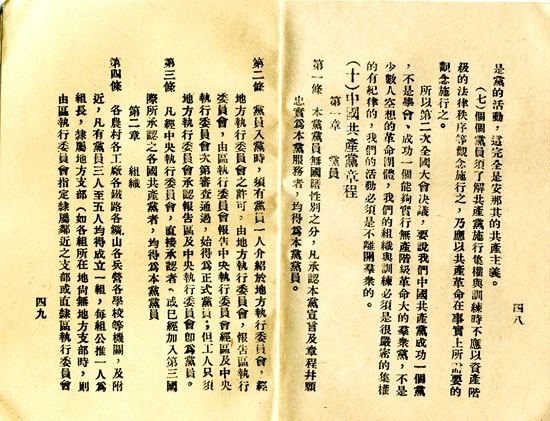 是黨的活動，這完全是安那其的共產主義。
（七）個個黨員須了解共產黨施行集權與訓練時不應以資產階
級的法律秩序等觀念施行之，乃應以共產革命在事實上所需要的
觀念施行之。
所以第二次全國大會决議，要說我們中國共產黨成功一個黨
，不是學會、成功一個能夠實行無產階級革命大的羣衆黨，不是
少數人空想的革命團體，我們的組織與訓練必須是很嚴密的集權
的有紀律的，我們的活動必須是不離開羣衆的。
（十）中國共產黨章程
第一章 黨員
第一條 本黨黨員無國籍性別之分，凡承認本黨宣言及章程幷願
忠實爲本黨服務者，均得爲本黨黨員。
四八
第二條 黨員入黨時，須有黨員一人介紹於地方執行委員會，經
地方執行委員會之許可，由地方執行委員會，報告區執行
委員會，由區執行委員會報告中央執行委員會經區及中央
執行委員會次第審查通過，始得爲正式黨員；但工人只須
地方執行委員會承認報告區及中央執行委員會卽爲黨員。
第三條 凡經中央執行委員會，直接承認者、或已經加入第三國
際所承認之各國共產黨者，均得爲本黨黨員
第二章 組織
第四條 各農村各工廠各鐵路各鑛山各兵營各學校等機關，及附
近，凡有黨員三人至五人均得成立一組，每組公推一人爲
組長，隸屬地方支部，（如各組所在地尙無地方支部時，則
由區執行委員會指定隸屬鄰近之支部或直隸區執行委員會
四九